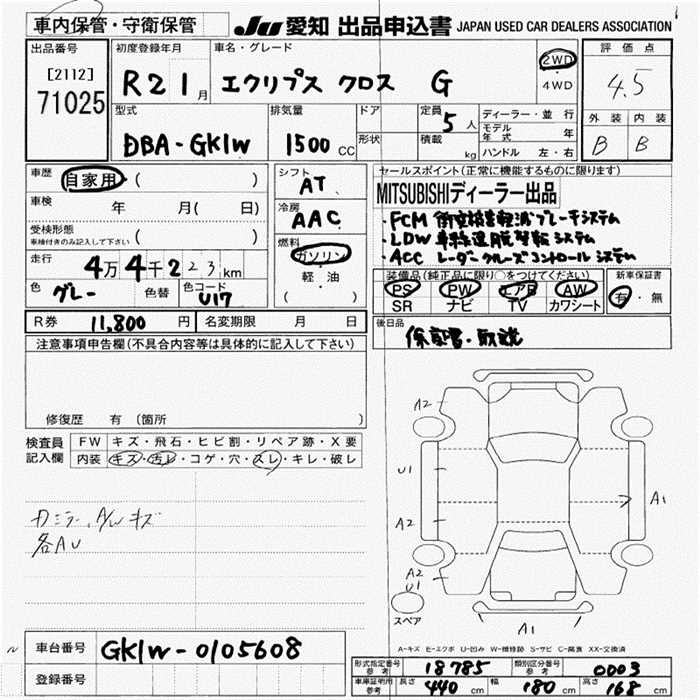 車内保管・守衛保管
JU 愛知 出品申込書 JAPAN USED CAR DEALERS ASSOCIATION
出品番号
[2112]
71025
初度登録年月
R2 1月
車名・グレード
エクリプス クロス G
2WD
・
4WD
評価点
4.5
外装 内装
B B
型式
DBA-GK1W
排気量
1500 cc
ドア
形状
定員 5人
積載 kg
ディーラー・並行
モデル年式 年
ハンドル 左・右
車歴 自家用 ( )
車検 年 月( 日)
受検形態
車検付きのみ記入して下さい ( )
走行 4万4千223km
色 グレー 色替 色コード U17
シフト AT
冷房 AAC
燃料
ガソリン
・
軽・油
( )
セールスポイント(正常に機能するものに限ります)
MITSUBISHIディーラー出品
・FCM 衝突被害軽減ブレーキシステム
・LDW 車線逸脱警報システム
・ACC レーダークルーズコントロールシステム
装備品(純正品に限り○をつけてください) 新車保証書
PS PW エアB AW
SR ナビ TV カワシート
有・無
R券 11,800円 名変期限 月 日
後日品 保証書・取説
注意事項申告欄(不具合内容等は具体的に記入して下さい)
修復歴 有 〔箇所 〕
検査員
記入欄
FW キズ・飛石・ヒビ割・リペア跡・X要
内装 キズ・汚レ・コゲ・穴・スレ・キレ・破レ
カミラー、A/Wキズ
各AU
A2
U1
A2
A2
U1
A1
A1
スペア
A-キズ E-エクボ U-凹み W-補修跡 S-サビ C-腐食 XX-交換済
車台番号 GK1W-0105608
登録番号
形式指定番号 参考 18785 類別区分番号 参考 0003
車庫証明用 参考 長さ 440cm 幅 180cm 高さ 168cm